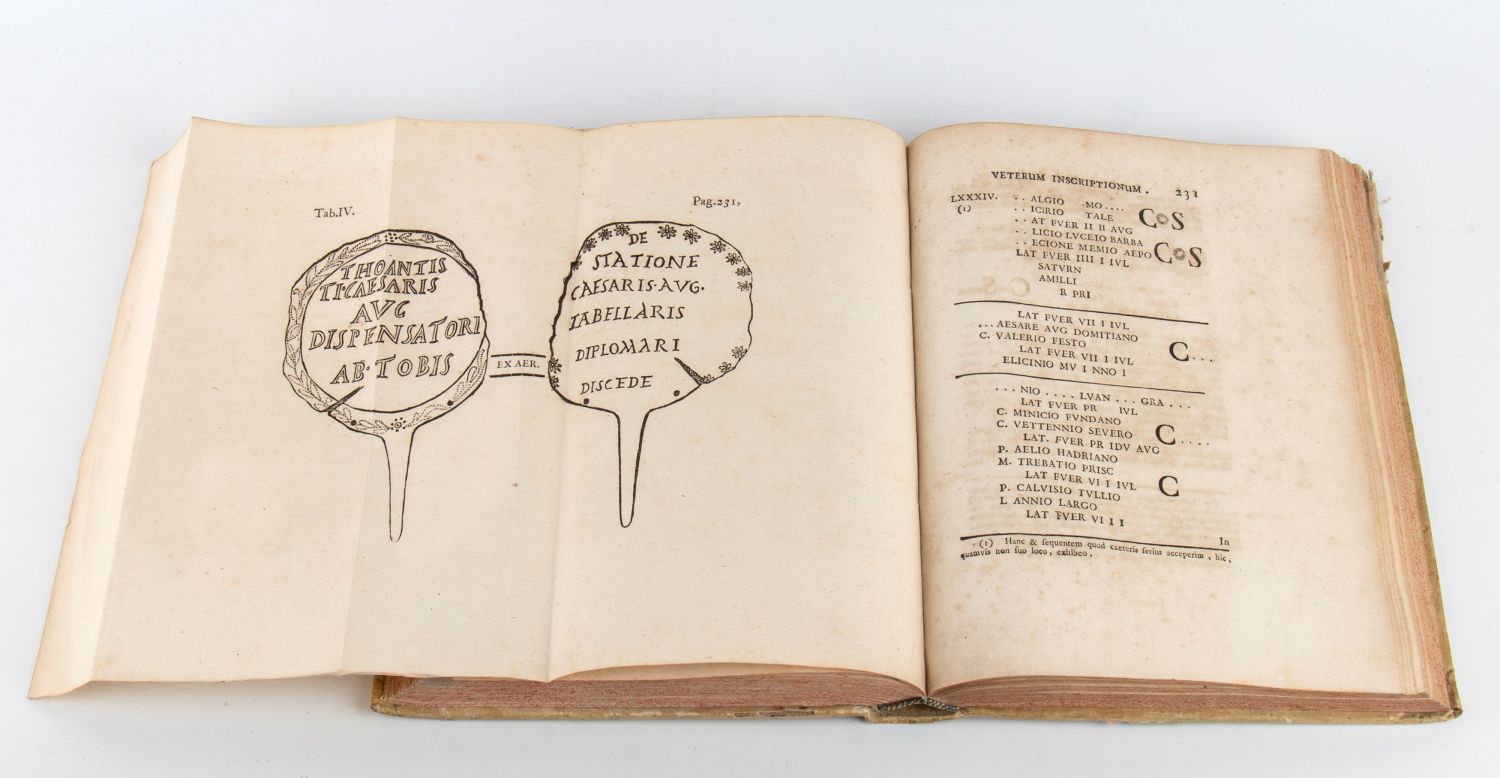 Tab.IV.
THOANTIS
TI·CAESARIS
AVG
DISPENSATORI
AB·TOBIS
EX AER.
Pag.231,
DE
STATIONE
CAESARIS·AVG.
TABELLARIS
DIPLOMARI
DISCEDE
VETERUM INSCRIPTIONUM. 231
LXXXIV. . . ALGIO MO . . . .
(1) . . ICIRIO TALE CoS
. . AT FVER II II AVG
. . LICIO LVCEIO BARBA
. . ECIONE MEMIO AEPO CoS
LAT FVER IIII I IVL
SATVRN
AMILLI
R PRI
LAT FVER VII I IVL
. . . AESARE AVG DOMITIANO
C. VALERIO FESTO C . . .
LAT FVER VII I IVL
ELICINIO MV I NNO I
. . . NIO . . . . LVAN . . . GRA . . .
LAT FVER PR IVL
C. MINICIO FVNDANO
C. VETTENNIO SEVERO C . . . .
LAT. FVER PR IDV AVG
P. AELIO HADRIANO
M. TREBATIO PRISC
LAT FVER VI I IVL C
P. CALVISIO TVLLIO
L ANNIO LARGO
LAT FVER VI I I
In
(1) Hanc & sequentem quod caeteris serius acceperim, hic,
quamvis non suo loco, exhibeo.